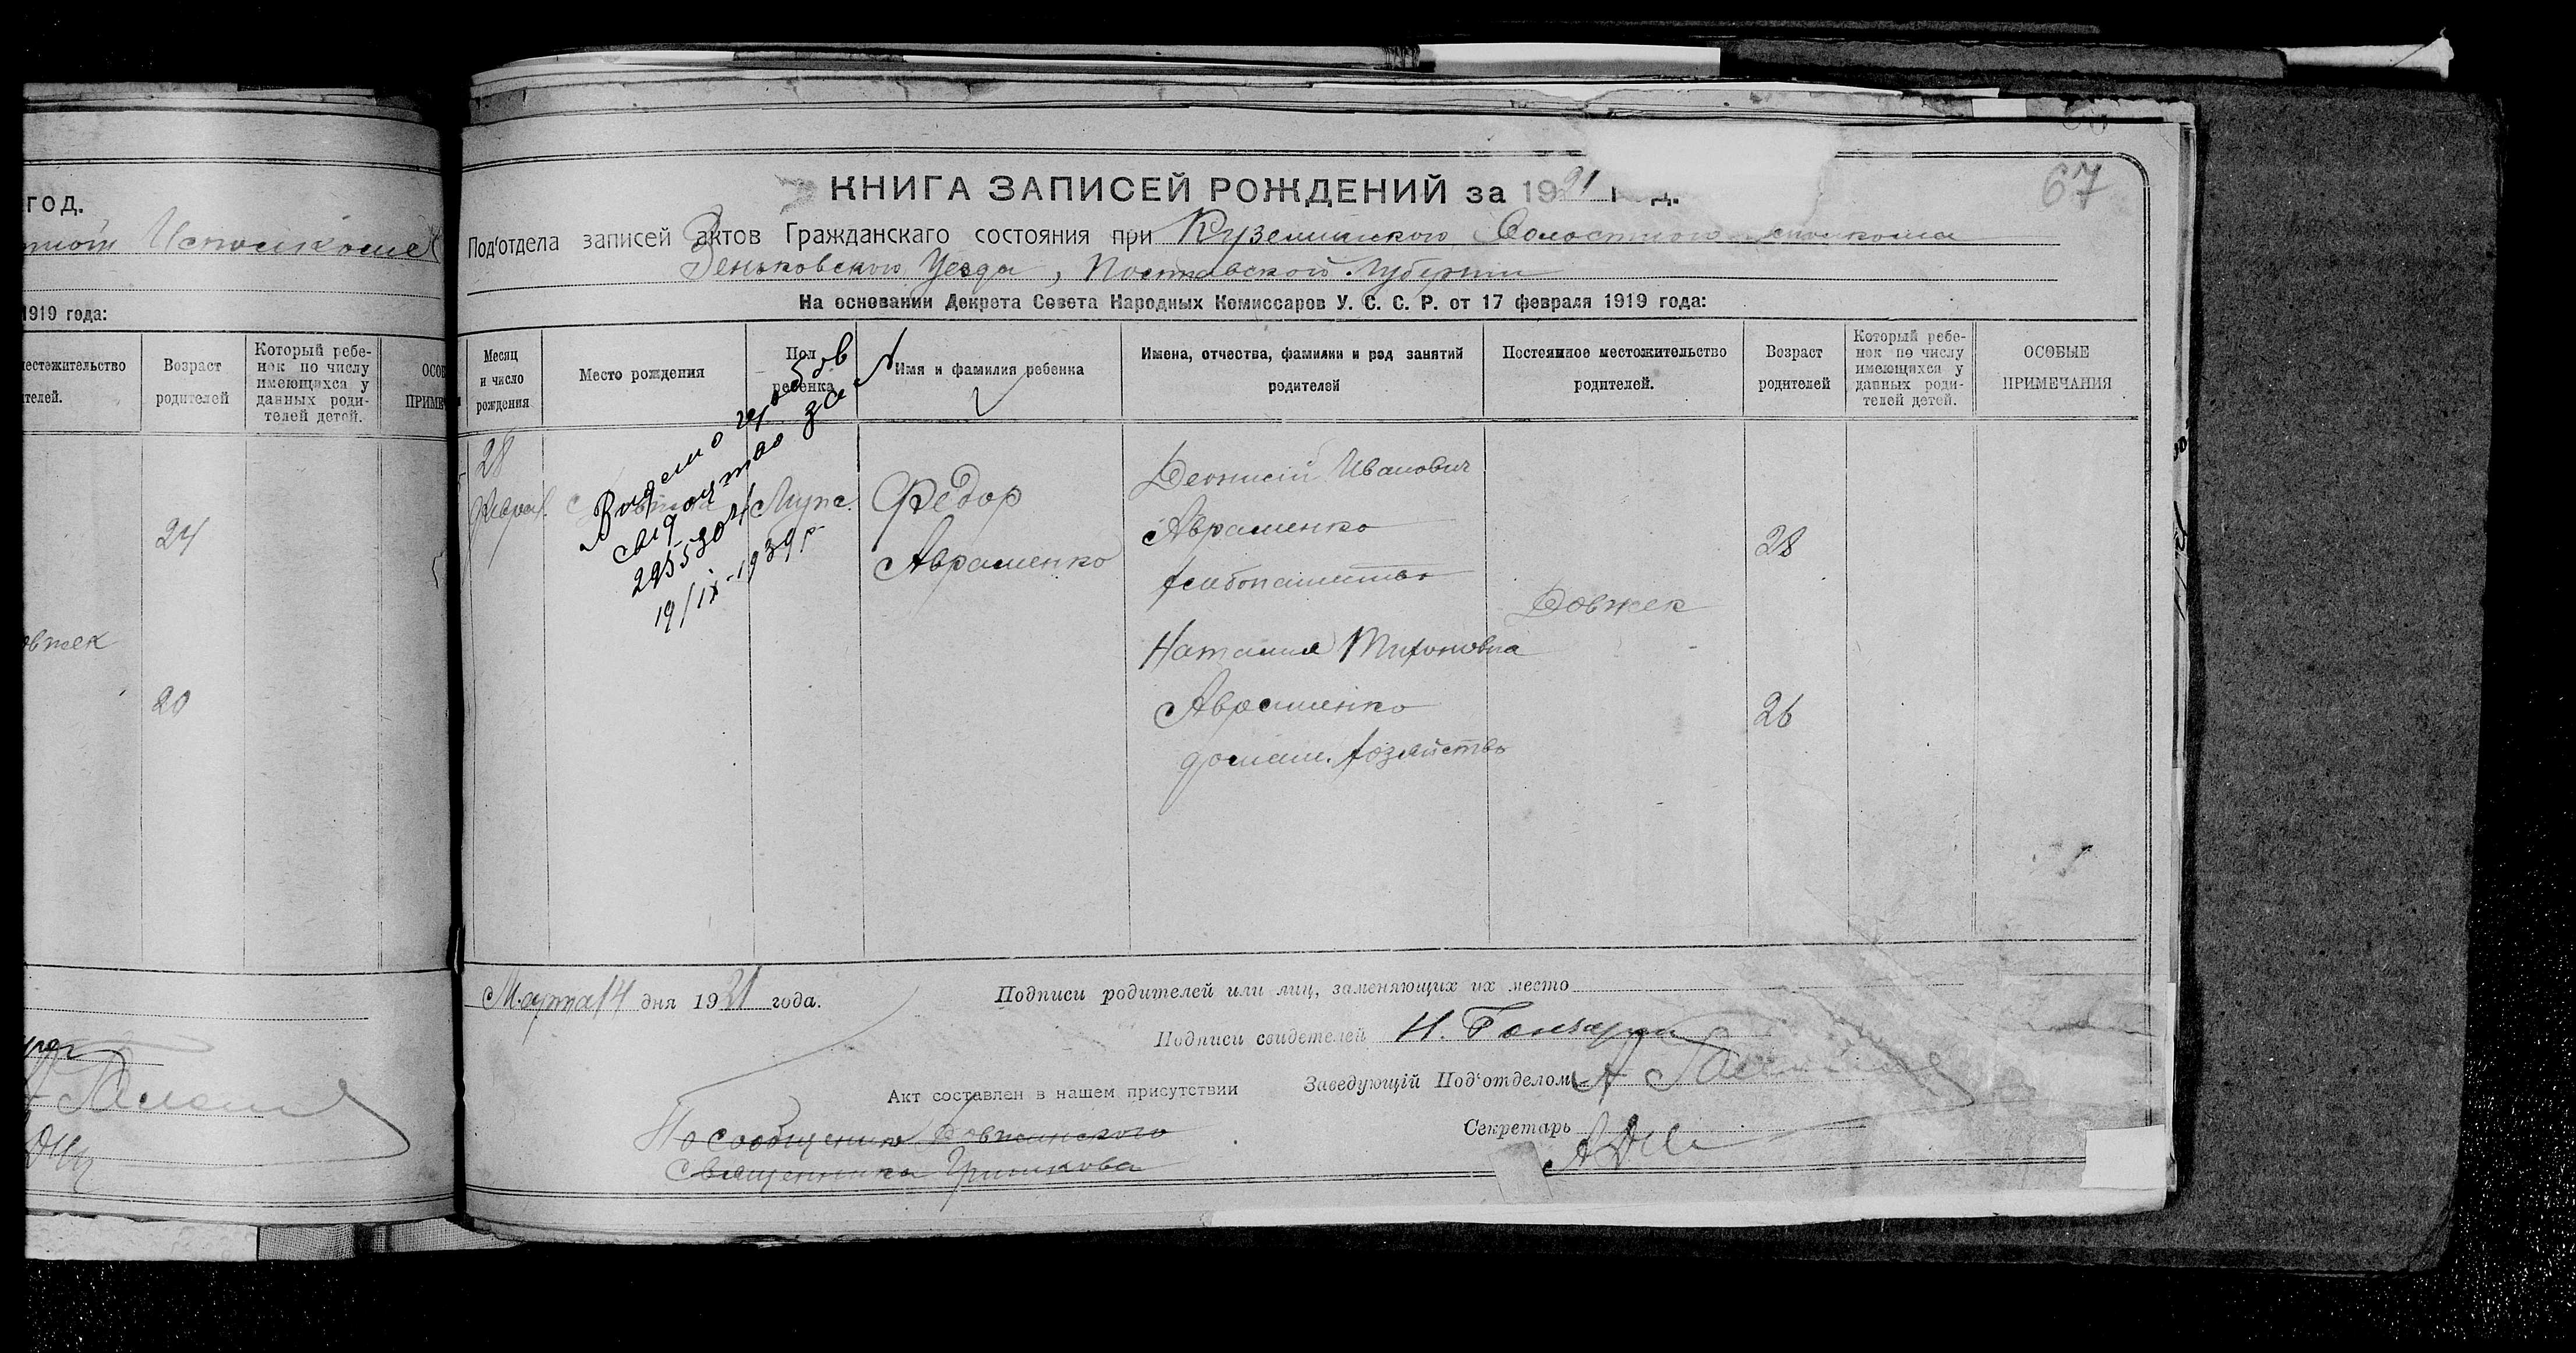 год.
1919 года:
Возраст родителей
Который ребенок по числу имеющихся у данных родителей детей.
24
20
67
КНИГА ЗАПИСЕЙ РОЖДЕНИЙ за 1921 г д.
Под'отдела записей актов Гражданскаго состояния при Куземинского Волостного
Зеньковского Уезда, Полтавской Губернии
На основании Декрета Совета Народных Комиссаров У. С. С. Р. от 17 февраля 1919 года:
Месяц и число рождения
Место рождения
Пол ребенка
Имя и фамилия ребенка
Имена, отчества, фамилии и род занятий родителей
Постоянное местожительство родителей.
Возраст родителей
Который ребенок по числу имеющихся у данных родителей детей.
ОСОБЫЕ ПРИМЕЧАНИЯ
28
Феврал.
Муж.
Федор
Авраменко
Деонисий Иванович
Авраменко
хлебопашество
Довжек
28
Наталия Тихоновна
Авраменко
домаш. хозяйство
26
19/IX-1939 г
Марта 14 дня 1921 года.
Подписи родителей или лиц, заменяющих их место
Подписи свидетелей Н. Гончар
Акт составлен в нашем присутствии
Заведующій Под'отделом А
Секретарь
По сообщению Довжанского
Священника Гришкова